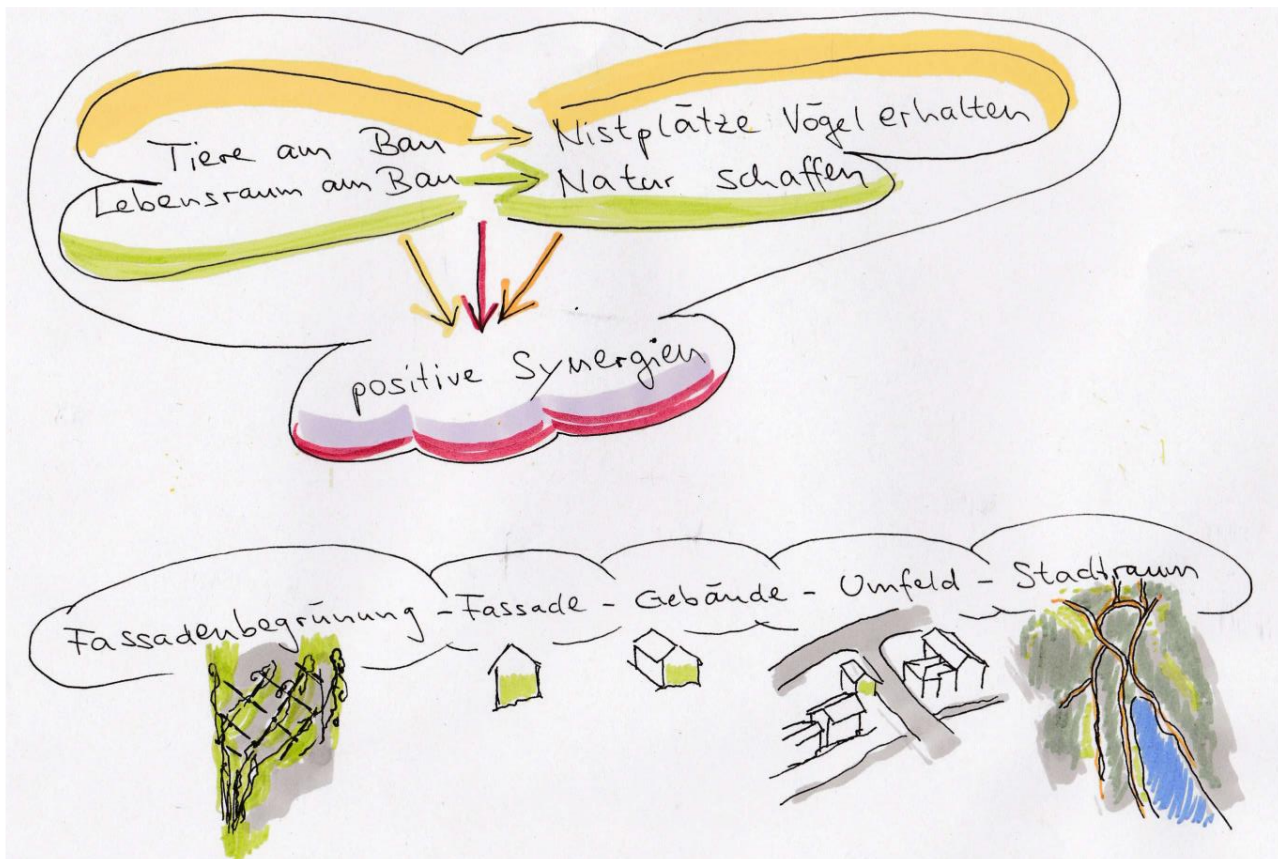 Tiere am Bau → Nistplätze Vögel erhalten
Lebensraum am Bau → Natur schaffen
positive Synergien
Fassadenbegrünung - Fassade - Gebäude - Umfeld - Stadtraum